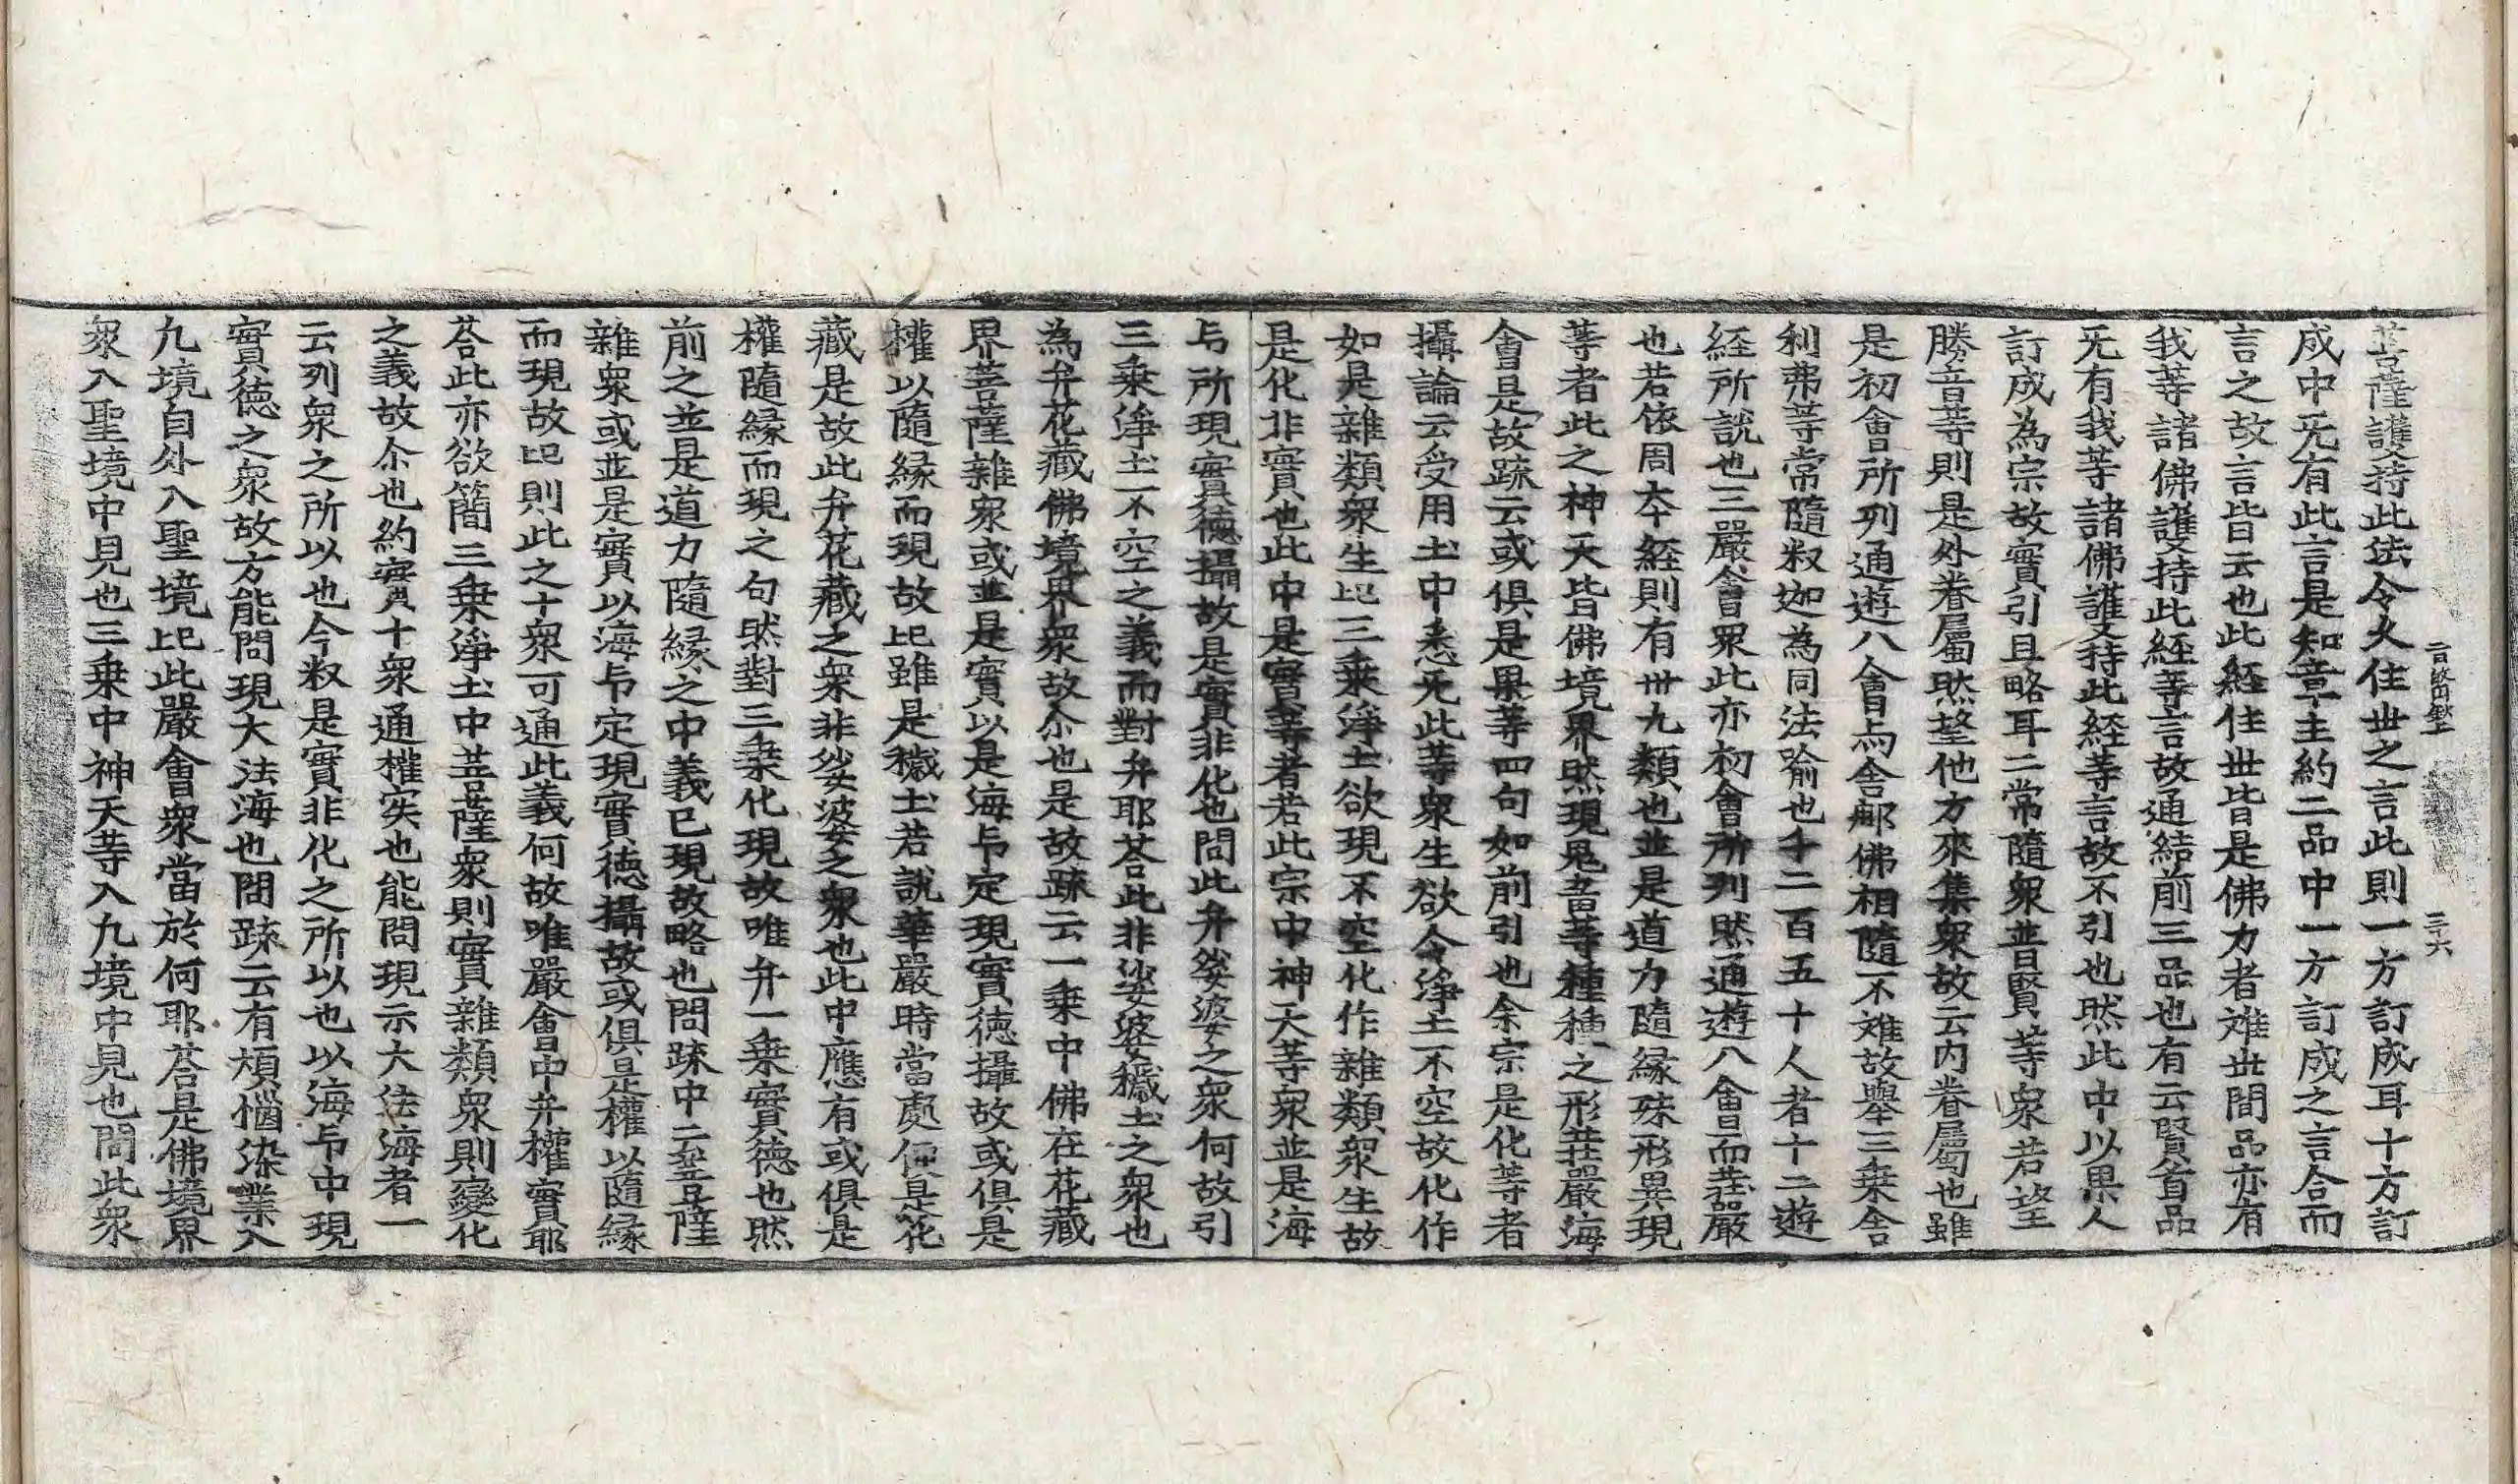 菩薩護持此法令久住世之言此則一方訂成耳十方訂
成中旡有此言是知章主約二品中一方訂成之言合而
言之故言皆云也此経住世皆是佛力者难世間品亦有
我等諸佛護持此経等言故通結前三品也有云賢首品
旡有我等諸佛護持此経等言故不引也然此中以果人
訂成為宗故實引且略耳二常隨衆普賢等衆若望
勝音等則是外眷屬然望他方來集衆故云内眷屬也雖
是初會所列通遊八會与舍那佛相隨不难故舉三乗舍
利弗等常隨釈迦為同法喻也千二百五十人者十二遊
経所説也三嚴會衆此亦初會所列然通遊八會而莊嚴
也若依周夲経則有卅九類也並是道力隨縁殊形異現
等者此之神天皆佛境界然現鬼畜等種種之形莊嚴海
會是故䟽云或俱是果等四句如前引也余宗是化等者
攝論云受用土中悉旡此等衆生欲令淨土不空故化作
如是雜類衆生比三乗淨土欲現不空化作雜類衆生故
是化非實也此中是實等者若此宗中神天等衆並是海
与所現實徳攝故是實非化也問此弁娑婆之衆何故引
三乗淨土不空之義而對弁耶荅此非娑婆穢土之衆也
為弁花藏佛境界衆故尒也是故䟽云一乗中佛在花藏
界菩薩雜衆或並是實以是海卬定現實徳攝故或俱是
權以隨縁而現故比雖是穢土若說華嚴時當處便是花
藏是故此弁花藏之衆非娑婆之衆也此中應有或俱是
權隨縁而現之句然對三乗化現故唯弁一乗實徳也然
前之並是道力隨縁之中義已現故略也問䟽中云菩薩
雜衆或並是實以海卬定現實徳攝故或俱是權以隨縁
而現故比則此之十衆可通此義何故唯嚴會中弁權實耶
荅此亦欲簡三乗淨土中菩薩衆則實雜類衆則變化
之義故尒也約實十衆通權実也能問現示大法海者一
云列衆之所以也今釈是實非化之所以也以海卬中現
實徳之衆故方能問現大法海也問䟽云有煩惱染業入
九境自外入聖境比此嚴會衆當於何耶荅是佛境界
衆入聖境中見也三乗中神天等入九境中見也問此衆